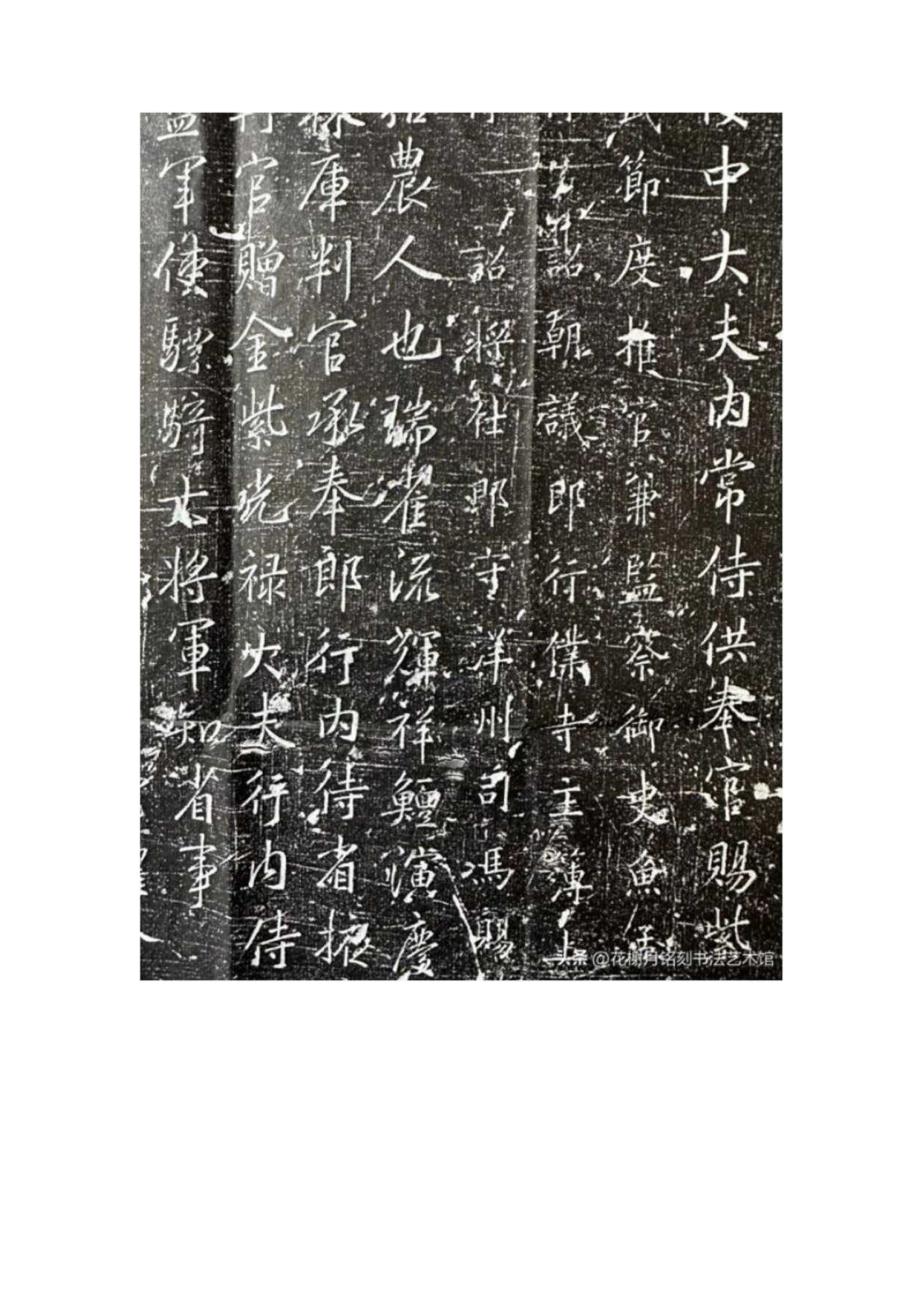 中大夫內常侍供奉官賜紫
節度推官兼監察御史魚
詔朝議郎行僕寺主簿
詔將仕郎守洋州司馮賜
農人也瑞雀流輝祥鱣演慶
庫判官承奉郎行內侍省掖
官贈金紫光祿大夫行內侍
軍使驃騎大將軍知省事
头条 @花榭月铭刻书法艺术馆